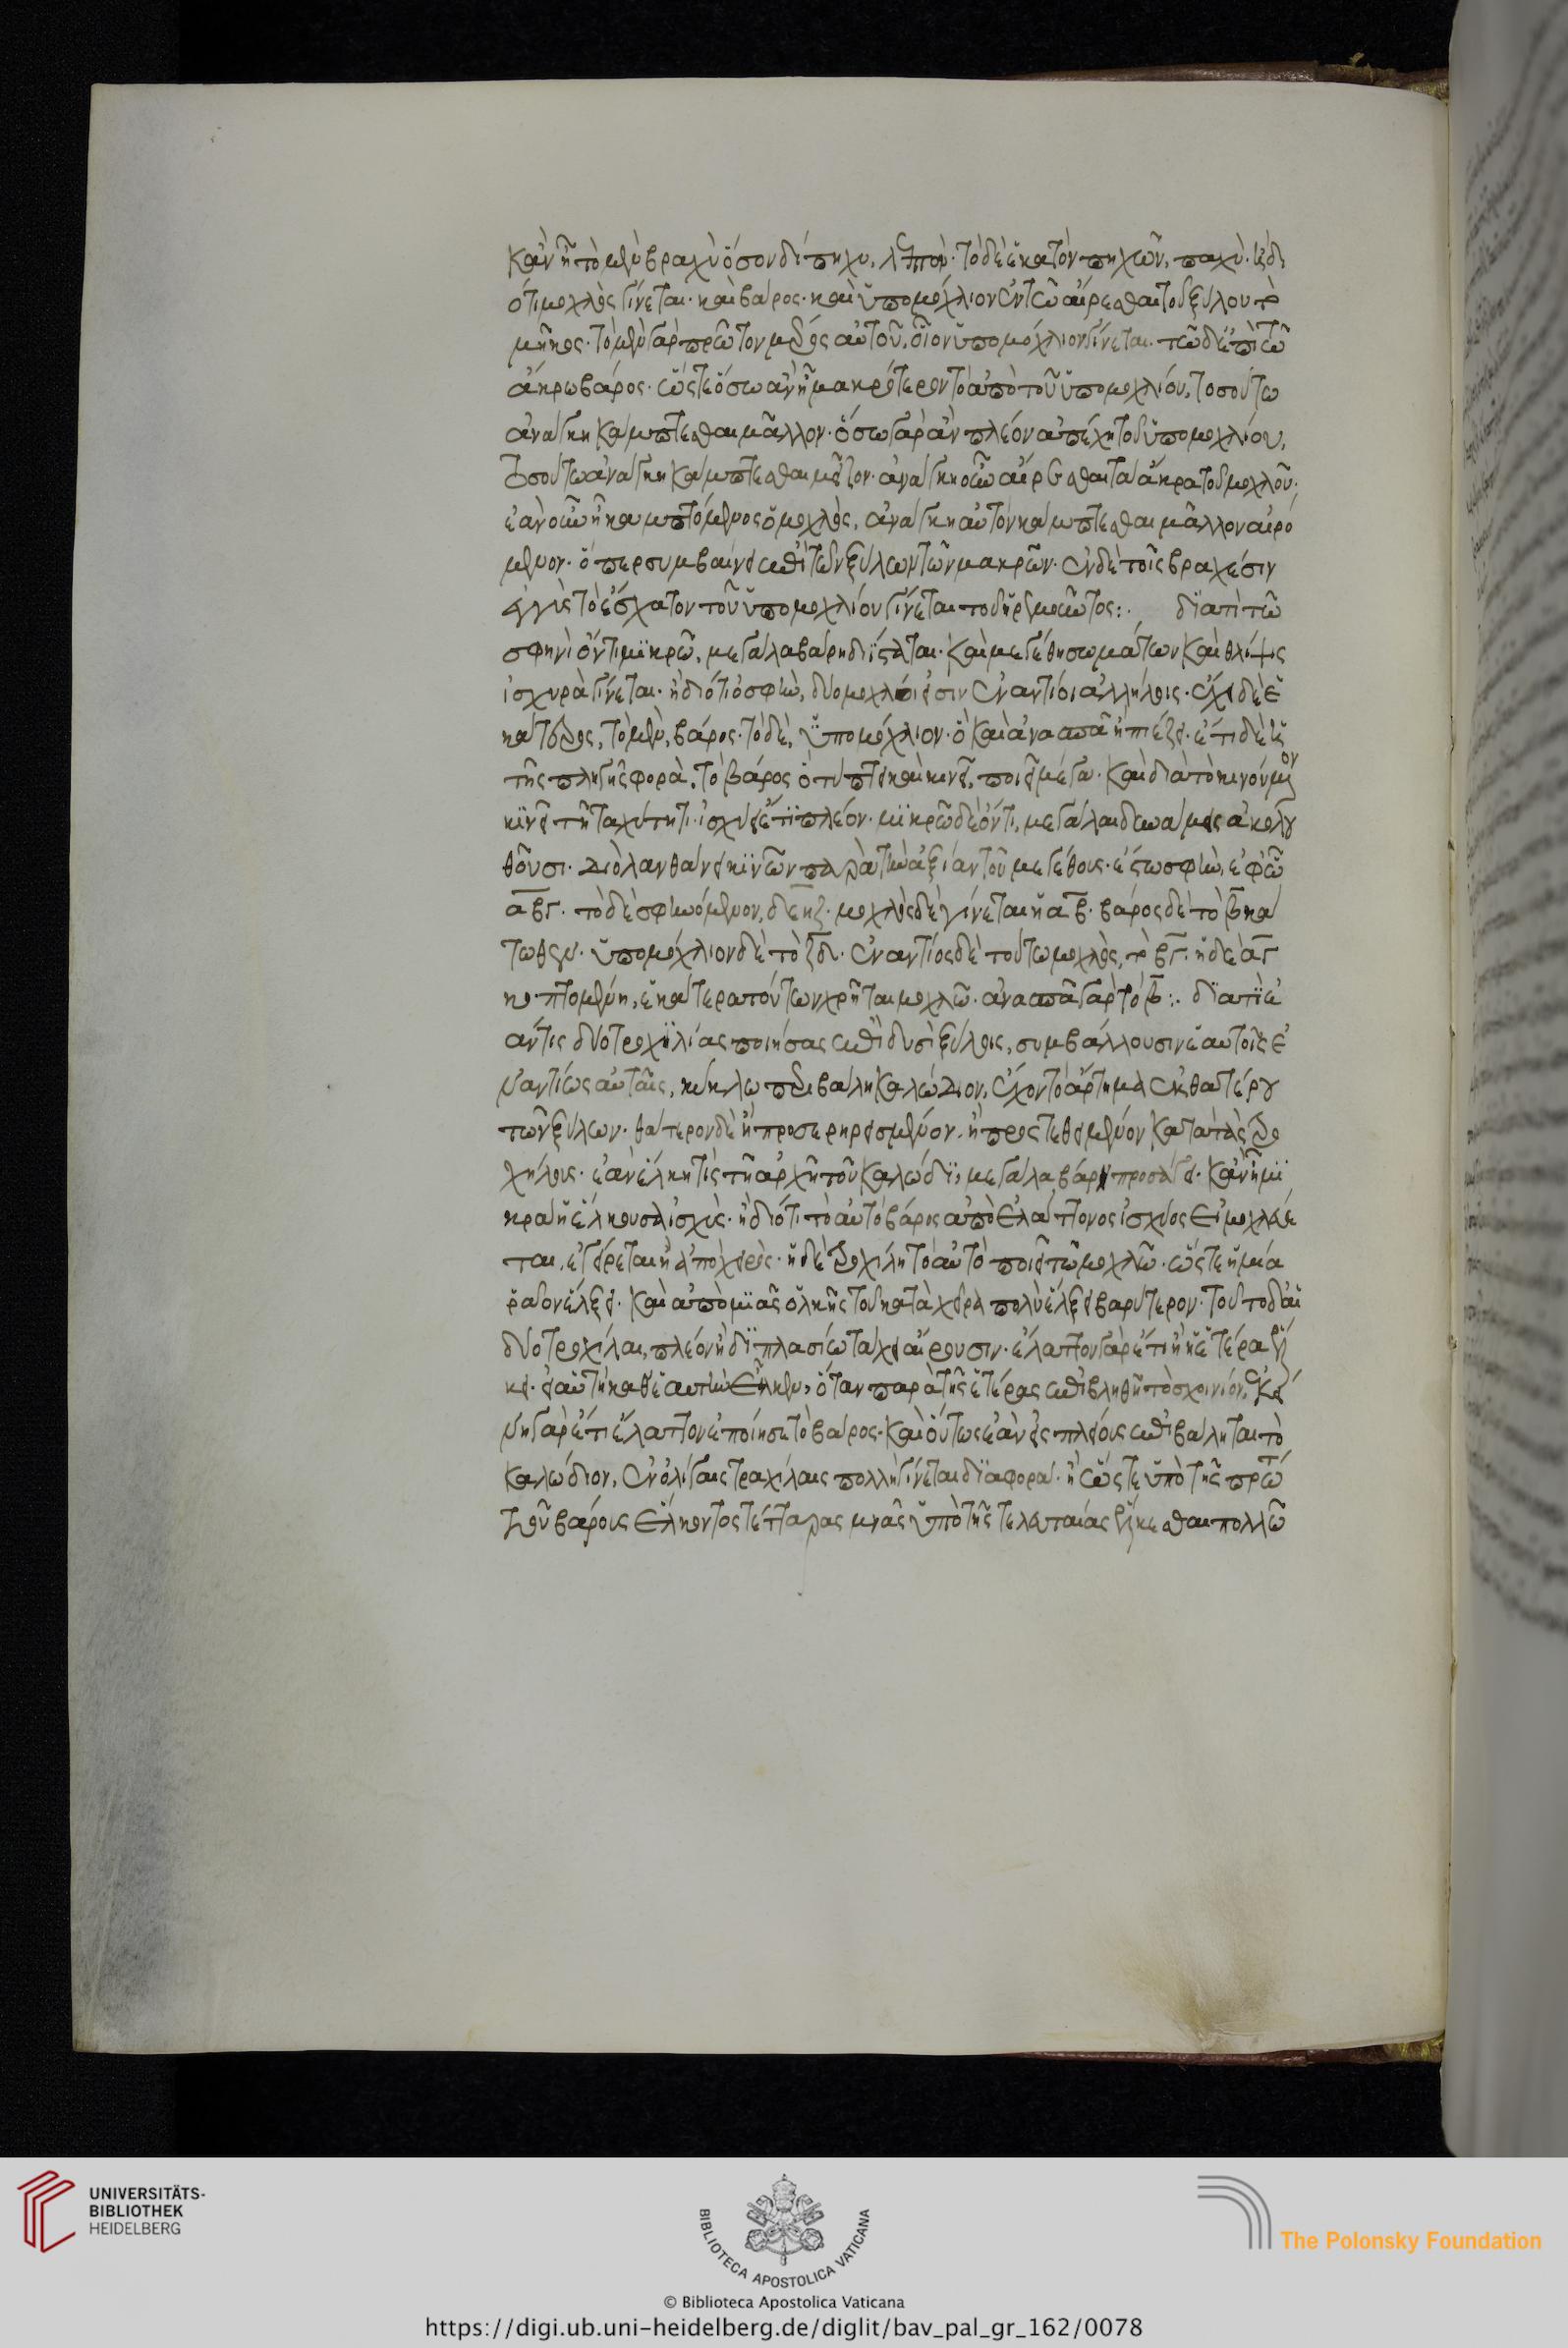 κἂν ᾖ τὸ μὲν βραχὺ ὅσον δίπηχυ, λεπτὸν· τὸ δὲ ἑκατὸν πηχῶν, παχύ. ἢ δι
ότι μοχλὸς γίνεται· καὶ βάρος· καὶ ὑπομόχλιον ἐν τῶ αἴρεσθαι τοῦ ξύλου τὸ
μῆκος· τὸ μὲν γὰρ πρῶτον μέρος αὐτοῦ, οἷον ὑπομόχλιον γίνεται. τῶ δ' ἐπὶ τῶ
ἄκρω βάρος· ὥστε ὅσω ἂν ᾖ μακρότερον τὸ ἀπὸ τοῦ ὑπομοχλίου, τοσούτω
ἀνάγκη κάμπτεσθαι μᾶλλον· ὅσω γὰρ ἂν πλέον ἀπέχη τοῦ ὑπομοχλίου,
τοσούτω ἀνάγκη κάμπτεσθαι μεῖζον· ἀνάγκη οὖν αἴρεσθαι τὰ ἄκρα τοῦ μοχλοῦ·
ἐὰν οὖν ἦ καμπτόμενος ὁ μοχλὸς, ἀνάγκη αὐτὸν κάμπτεσθαι μᾶλλον αἰρό
μενον· ὅπερ συμβαίνει ἐπὶ τῶν ξύλων τῶν μακρῶν· ἐν δὲ τοῖς βραχέσιν
ἐγγὺς τὸ ἔσχατον τοῦ ὑπομοχλίου γίνεται τοῦ ἠρεμοῦντος:· διατί τῶ
σφηνὶ ὄντι μικρῶ, μεγάλα βάρη διΐσταται· καὶ μεγέθη σωμάτων καὶ θλίψις
ἰσχυρὰ γίνεται· ἢ διότι ὁ σφὴν, δύο μοχλοί εἰσιν ἐναντίοι ἀλλήλοις· ἔχει δὲ ἑ
κάτερος, τὸ μὲν, βάρος· τὸ δὲ, ὑπομόχλιον· ὃ καὶ ἀνασπᾶ ἢ πιέζει· ἔτι δὲ ἡ
τῆς πληγῆς φορὰ, τὸ βάρος ὃ τύπτει καὶ κινεῖ, ποιεῖ μέγα· καὶ διὰ τὸ κινούμενον
κινεῖ τῆ ταχυτῆτι· ἰσχύει ἔτι πλέον· μικρῶ δὲ ὄντι, μεγάλαι δυνάμεις ἀκολου
θοῦσι· διὸ λανθάνει κινῶν παρὰ τὴν ἀξίαν τοῦ μεγέθους· ἔστω σφὴν, ἐφ' ὧ
α β γ. τὸ δὲ σφηνόμενον, δ ε η ζ. μοχλὸς δὲ γίνεται ἡ α β. βάρος δὲ τὸ β κά
τωθεν· ὑπομόχλιον δὲ τὸ ζ δ. ἐναντίος δὲ τούτω μοχλὸς, τὸ β γ. ἡ δὲ α γ
κοπτομένη, ἑκατέρα τούτων χρῆται μοχλῶ· ἀνασπᾶ γὰρ τὸ β:· διατί ἐ
άν τις δύο τροχιλίας ποιήσας ἐπὶ δυσὶ ξύλοις, συμβάλλουσιν ἑαυτοῖς ἐ
ναντίως αὐταῖς, κύκλω περιβάλη καλώδιον, ἔχον τὸ ἄρτημα ἐκ θατέρου
τῶν ξύλων· θάτερον δὲ ἢ προσερηρεισμένον, ἢ προστεθειμένον κατὰ τὰς τρο
χήλοις· ἐὰν ἕλκη τὶς τῆ ἀρχῆ τοῦ καλωδί, μεγάλα βάρη προσάγει· κἂν ἦ μι
κρὰ ἡ ἕλκουσα ἰσχὺς· ἢ διότι τὸ αὐτὸ βάρος ἀπὸ ἐλάττονος ἰσχύος εἰ μοχλεύε
ται, ἐγείρεται ἢ ἀπὸ χειρὸς· ἡ δὲ τροχίλη τὸ αὐτὸ ποιεῖ τῶ μοχλῶ· ὥστε ἡ μία
ῥᾶον ἕλξει· καὶ ἀπὸ μιᾶς ὁλκῆς τοῦ κατὰ χεῖρα πολὺ ἕλξει βαρύτερον· τοῦτο δ' αἱ
δύο τροχίλαι, πλέον ἢ διπλασίω τάχει αἴρουσιν· ἔλαττον γὰρ ἔτι ἡ ἑτέρα ἕλ
κει. εἰ αὐτὴ καθ' ἑαυτὴν εἷλκεν, ὅταν παρὰ τῆς ἑτέρας ἐπιβληθῆ τὸ σχοινίον, ἐκεί
νη γὰρ ἔτι ἔλαττον ἐποίησε τὸ βάρος· καὶ οὕτως ἐὰν εἰς πλείους ἐπιβάληται τὸ
καλώδιον, ἐν ὀλίγαις τραχίλαις πολλὴ γίνεται διαφορά· ἢ ὥστε ὑπὸ τῆς πρώτ
του βάρους ἕλκοντος τέτταρας μνᾶς ὑπὸ τῆς τελευταίας ἕλκεσθαι πολλῶ
UNIVERSITÄTS-
BIBLIOTHEK
HEIDELBERG
BIBLIOTECA APOSTOLICA VATICANA
The Polonsky Foundation
© Biblioteca Apostolica Vaticana
https://digi.ub.uni-heidelberg.de/diglit/bav_pal_gr_162/0078